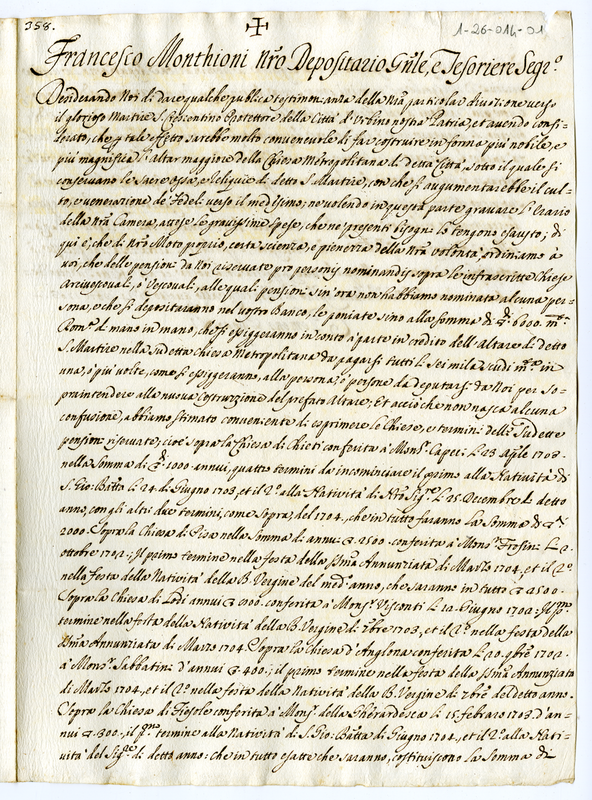 358.
1-26-014-01
Francesco Monthioni nrõ Depositario Gnle, e Tesoriere Segr.º
Desiderando Noi di dare qualche publica testimonianza della Nrã particolar divozione verso
il glorioso Martire S. Crescentino Protettore della Città d'Urbino nostra Patria, et avendo consi-
derato, che p tale effetto sarebbe molto convenevole di far costruire in forma più nobile, e
più magnifica l'altar maggiore della Chiesa Metropolitana di detta Città, sotto il quale si
conservano le Sacre Ossa, e Reliquie di detto S. Martire, con che si augumentarebbe il cul-
to, e venerazione de' Fedeli verso il medesimo; ne volendo in questa parte gravare l'Erario
della Nrã Camera, attese le gravissime spese, che ne' presenti bisogni lo tengono esausto; di
qui è, che di Nrõ Moto proprio, certa scienza, e pienezza della Nrã volontà ordiniamo à
voi, che delle pensioni da Noi riservate pro personis nominandis sopra le infrascritte Chiese
Arcivescovali, ò Vescovali, alle quali pensioni sin'ora non habbiamo nominata alcuna per-
sona, e che si depositaranno nel vostro Banco, le poniate sino alla somma di 6000. mta
Romª di mano in mano, che si esiggeranno in conto à parte in credito dell'altare di detto
S. Martire nella sudetta Chiesa Metropolitana da pagarsi tutti li sei mila scudi mta in
una, ò più volte, come si esiggeranno, alla persona, ò persone da deputarsi da Noi per so-
praintendere alla nuova costruzione del prefato Altare; Et acciò che non nasca alcuna
confusione, abbiamo stimato conveniente di esprimere le Chiese, e termini delle sudette
pensioni riservate; cioè sopra la Chiesa di Chieti conferita à Mons.r Capeci li 23 Aple 1703.
nella somma di 1000 annui, quattro termini da incominciare il primo alla Natività di
S. Gio: Battã li 24 di Giugno 1703, et il 2º alla Natività di Nrõ Sig.re li 25 Decembre di detto
anno, con gli altri due termini, come sopra, del 1704., che in tutto faranno la somma di
2000. Sopra la Chiesa di Pisa nella somma di annui 2500 conferita à Mons.r Frosini li 2
ottobre 1702: Il primo termine nella festa della SSmã Annunziata di Marzo 1704, et il 2º
nella festa della Natività della B. Vergine del med.º anno, che saranno in tutto 2500.
Sopra la Chiesa di Lodi annui 3000. conferita à Mons.r Visconti li 12 Giugno 1702: Il pº
termine nella festa della Natività della B. Vergine di 7bre 1703, et il 2º nella festa della
SSmã Annunziata di Marzo 1704. Sopra la Chiesa d'Anglona conferita li 20. 9bre 1702.
à Mons.r Sabbatini d'annui 400.; il primo termine nella festa della SSmã Annunziata
di Marzo 1704., et il 2º nella festa della Natività della B. Vergine di 7bre del detto anno.
Sopra la Chiesa di Fiesole conferita à Mons.r della Gherardesca li 15. febraro 1703. d'an-
nui 300., il pº termine alla Natività di S. Gio: Battã di Giugno 1704., et il 2º alla Nati-
vità del Sig.re di detto anno: che in tutto esatte che saranno, costituiscono la Somma di